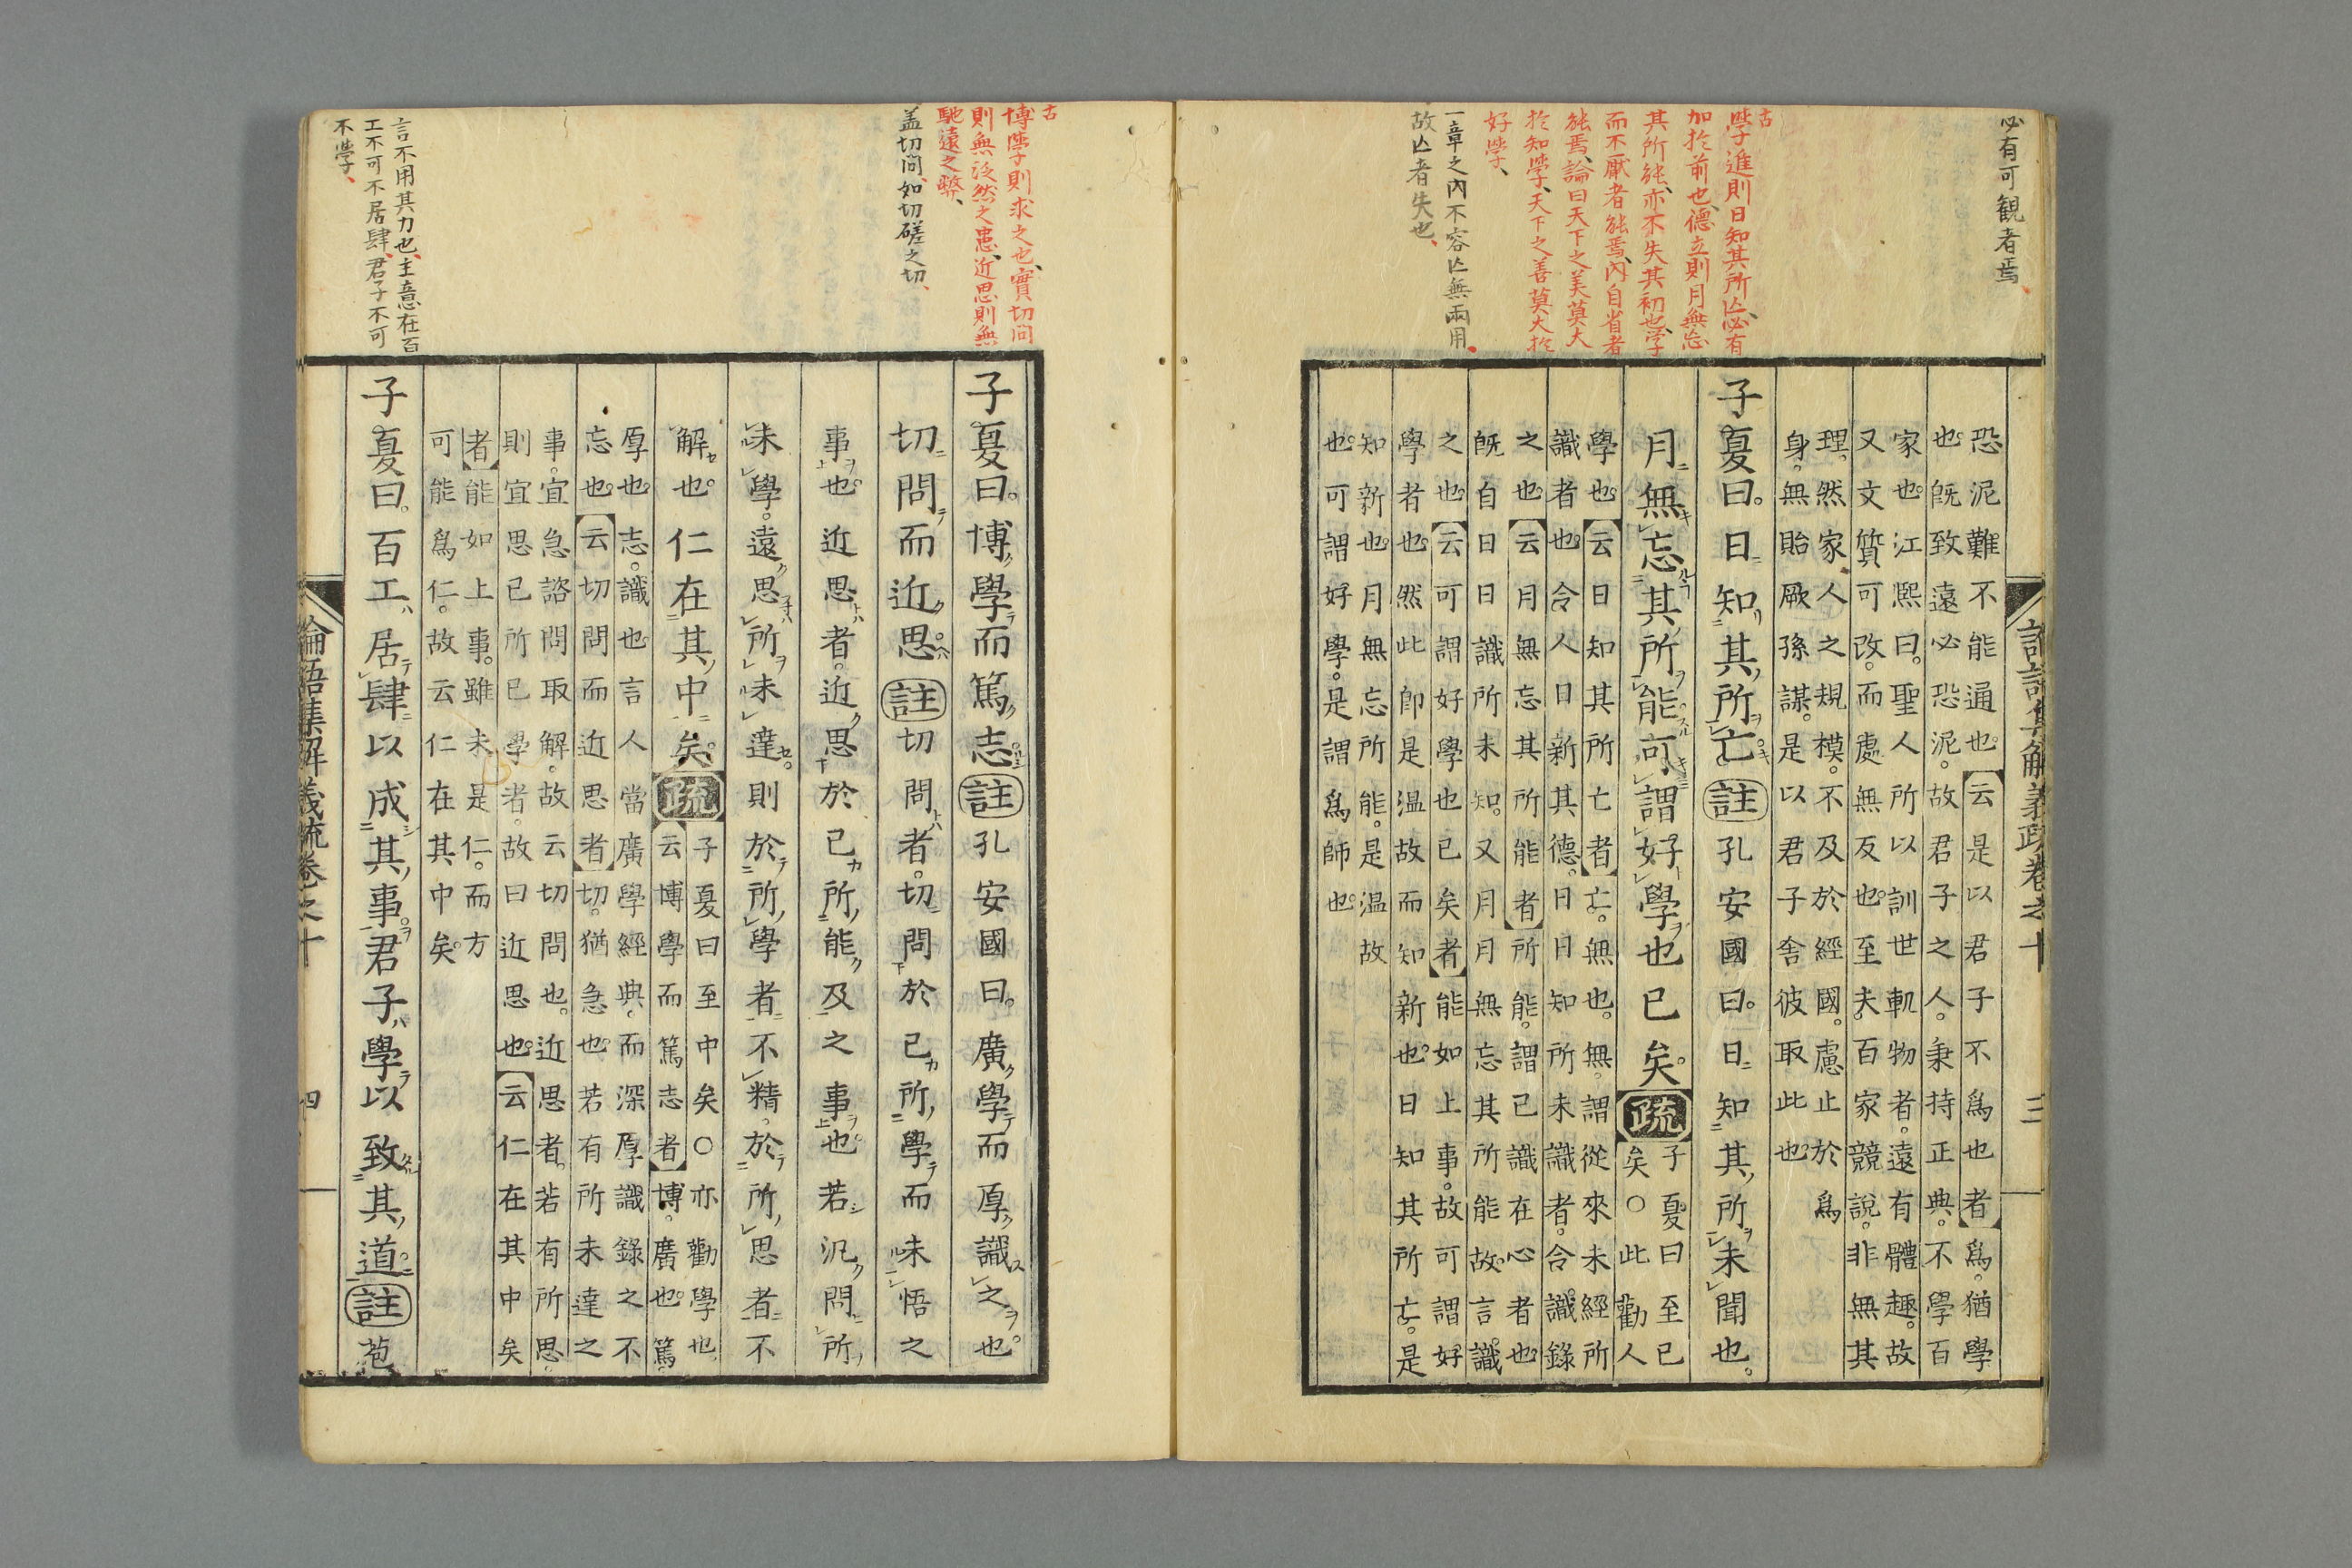 必有可観者焉
古
学進則日知其所亡必有
加於前也德立則月無忘
其所能亦不失其初也学
而不厭者能焉内自省者
能焉論曰天下之美莫大
於知学天下之善莫大於
好学
一章之内不容亡無兩用
故亡者失也
論語集解義疏卷之十
三
恐泥難不能通也云是以君子不爲也者爲猶學
也旣致遠必恐泥故君子之人秉持正典不學百
家也江熙曰聖人所以訓世軌物者遠有體趣故
又文質可改而處無反也至夫百家競說非無其
理然家人之規模不及於經國慮止於爲
身無貽厥孫謀是以君子舍彼取此也
子夏曰日知其所亡註孔安國曰日知其所未聞也
月無忘其所能可謂好學也已矣疏子夏曰至已
矣○此勸人
學也云日知其所亡者亡無也無謂從來未經所
識者也令人日新其德日日知所未識者令識錄
之也云月無忘其所能者所能謂已識在心者也
旣自日日識所未知又月月無忘其所能故言識
之也云可謂好學也已矣者能如上事故可謂好
學者也然此卽是温故而知新也日知其所亡是
知新也月無忘所能是温故
也可謂好學是謂爲師也
古
博学則求之也實切問
則無泛然之患近思則無
馳遠之弊
盖切問如切磋之切
言不用其力也主意在百
工不可不居肆君子不可
不学
子夏曰博學而篤志註孔安國曰廣學而厚識之也
切問而近思註切問者切問於己所學而未悟之
事也近思者近思於己所能及之事也若汎問所
未學遠思所未達則於所學者不精於所思者不
解也仁在其中矣疏子夏曰至中矣○亦勸學也
云博學而篤志者博廣也篤
厚也志識也言人當廣學經典而深厚識錄之不
忘也云切問而近思者切猶急也若有所未達之
事宜急諮問取解故云切問也近思者若有所思
則宜思已所已學者故曰近思也云仁在其中矣
者能如上事雖未是仁而方
可能爲仁故云仁在其中矣
子夏曰百工居肆以成其事君子學以致其道註苞
論語集解義疏卷之十
四